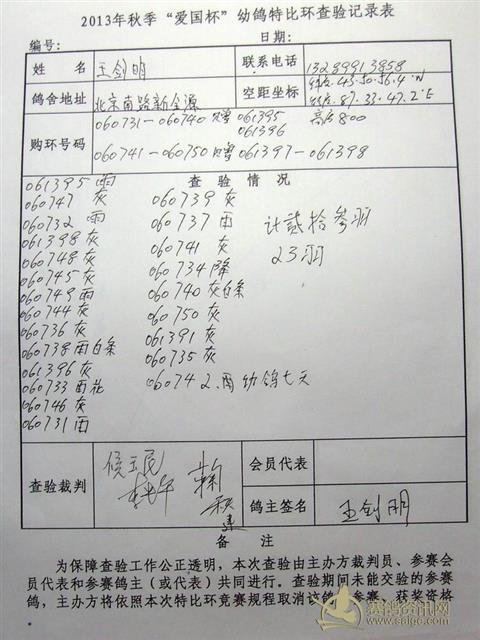 2013年秋季“爱国杯”幼鸽特比环查验记录表
编号: 日期:
姓名 王剑明 联系电话 13289913858
鸽舍地址 北京南路新金源 空距坐标 43.50.56.4"N
87.33.47.2"E
购环号码 060731-060740 061395 高800
061396
060741-060750 061397-061398
查验情况
061395 雨 060739 灰
060747 灰 060737 雨
060732 雨 060741 灰
061398 灰 060734 降
060748 灰 060740 灰白条
060745 灰 060750 灰
060749 雨 061391 灰
060744 灰 060735 灰
060736 灰 060742.雨幼鸽七天
060738 雨白条
061396 灰
060733 雨花
060746 灰
060731 雨
计贰拾参羽
23羽
查验裁判 会员代表
鸽主签名 王剑明
备注
为保障查验工作公正透明，本次查验由主办方裁判员、参赛会
员代表和参赛鸽主（或代表）共同进行。查验期间未能交验的参赛
鸽，主办方将依照本次特比环竞赛规程取消该鸽参赛、获奖资格
赛鸽资讯网
www.saige.com